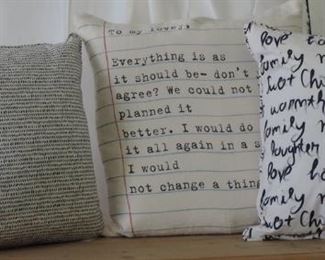 To my
Everything is as
it should be- don't
agree? We could not
planned it
better. I would do
it all again in a s
I would
not change a thing
love
family
hot
warmth
family
laughter
love
family
hot Ch